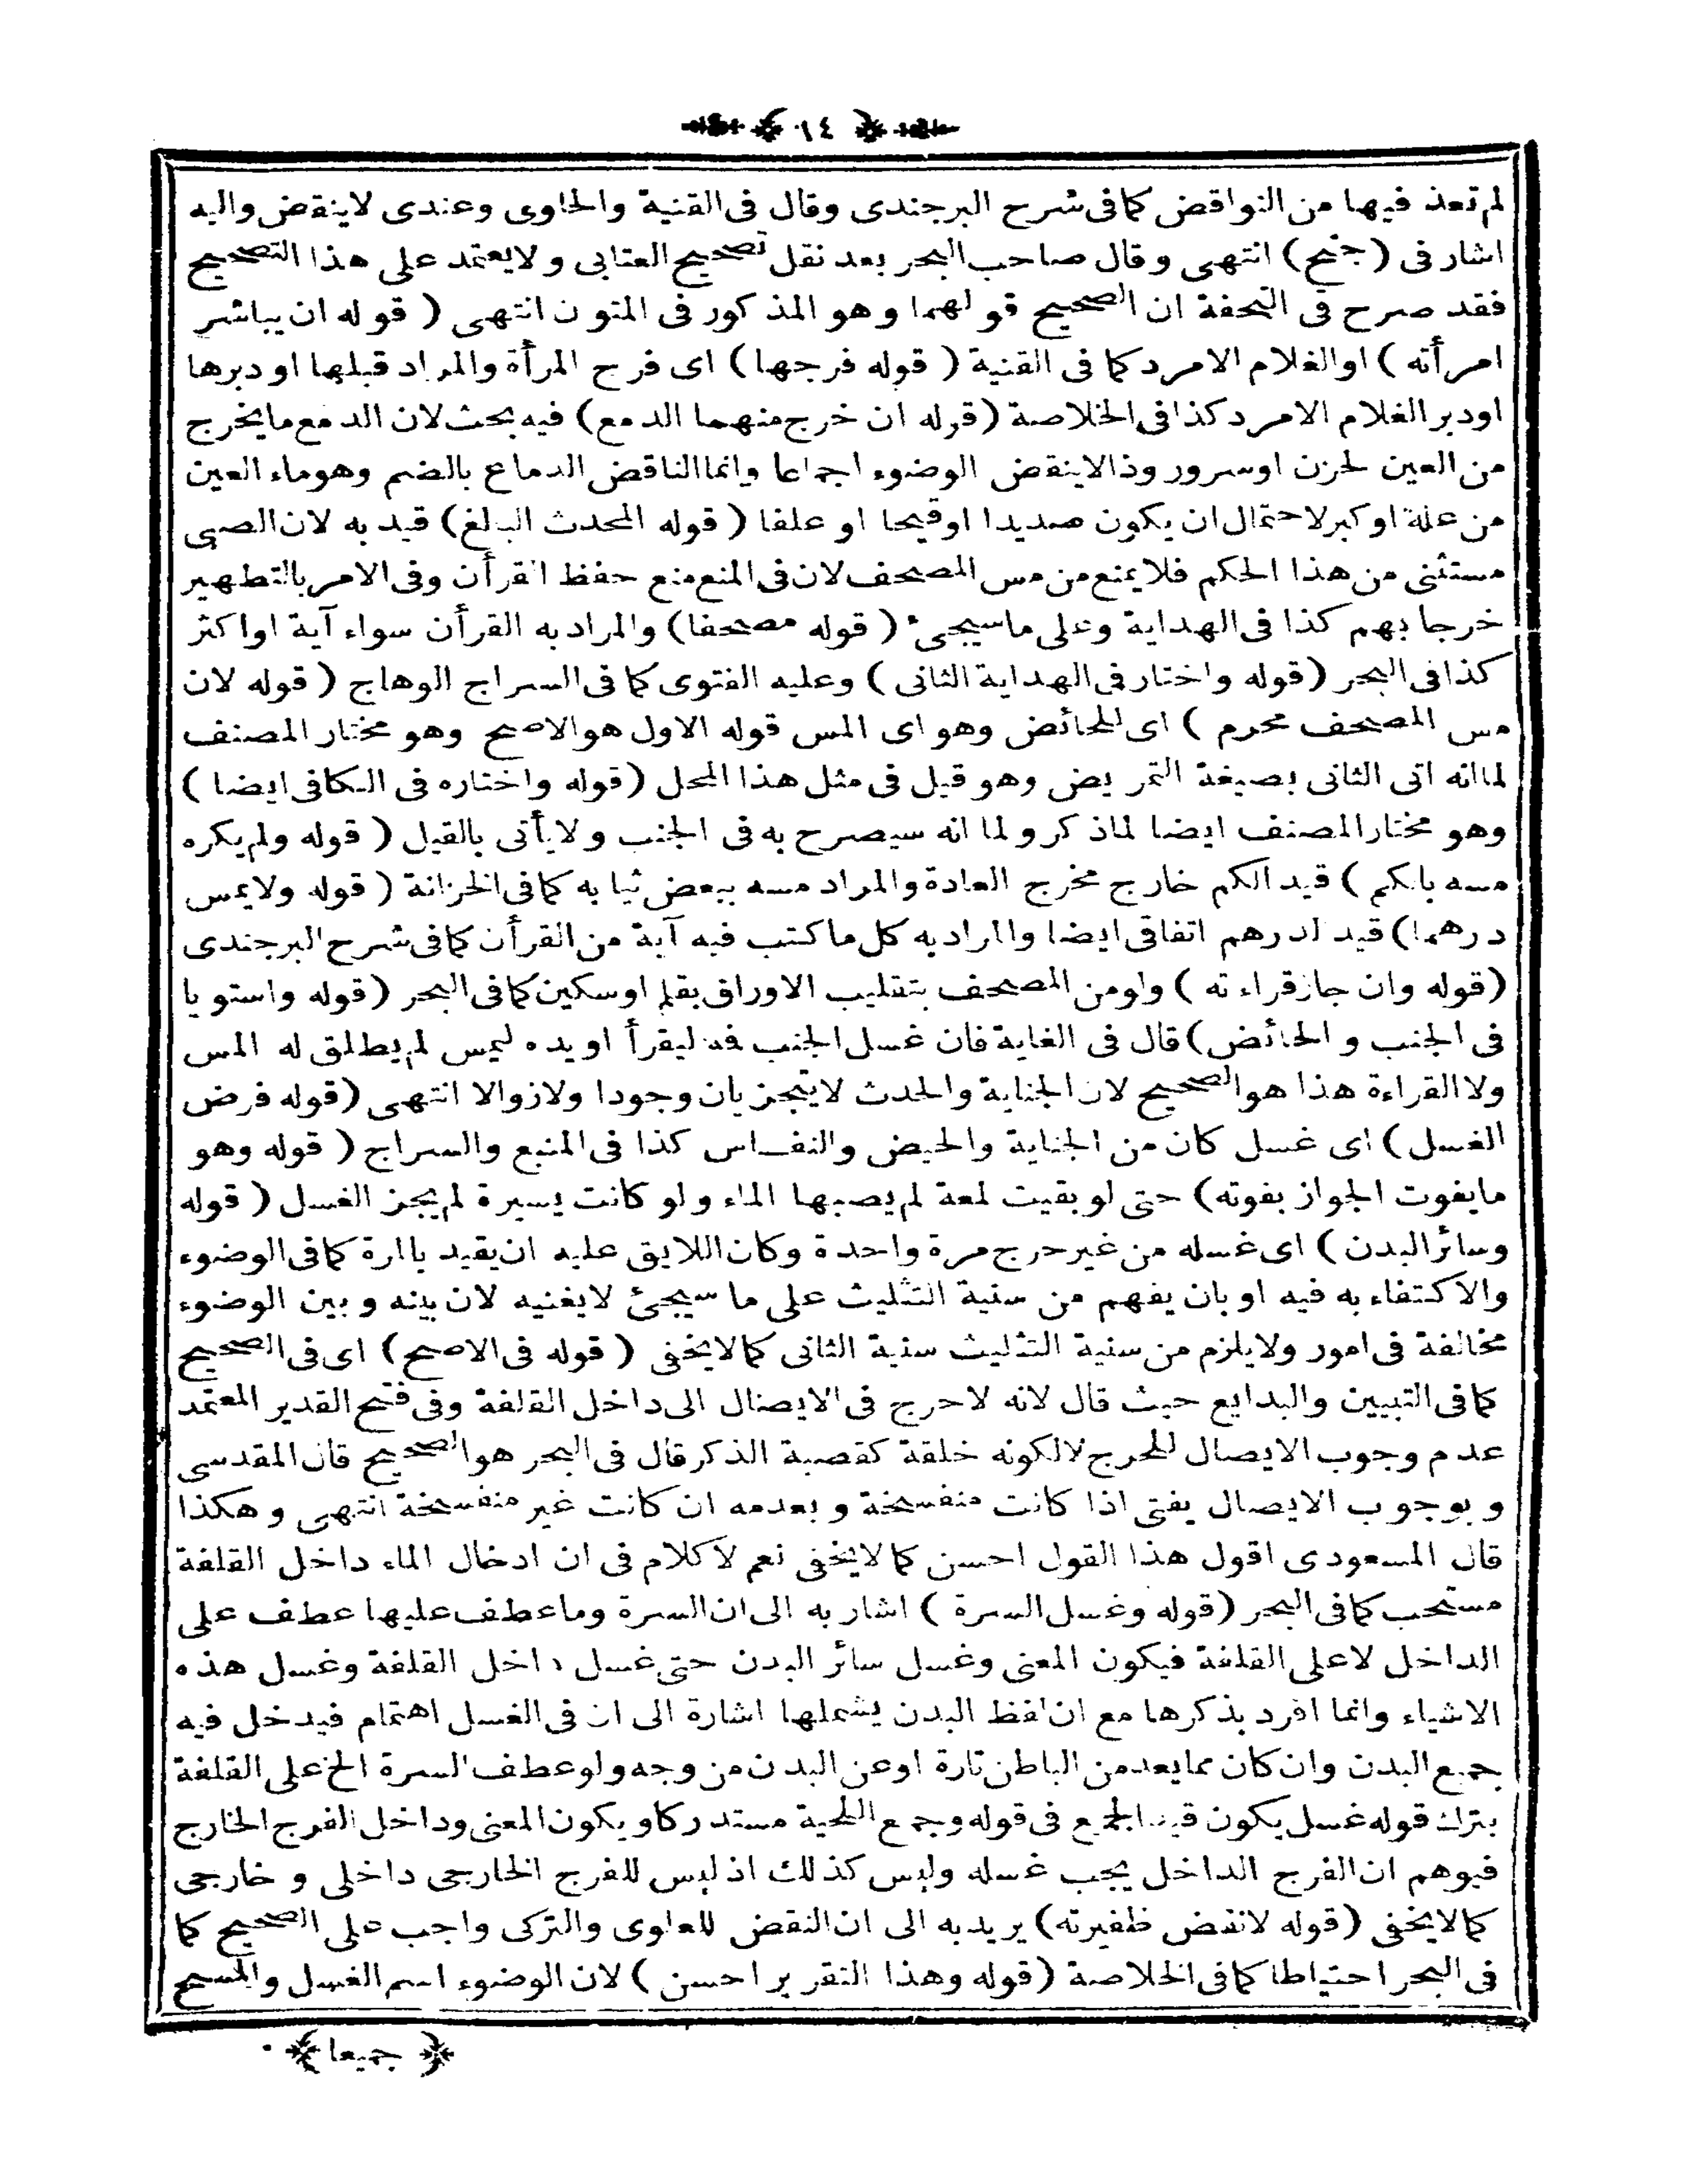 ١٤
لم تعد فيها من النواقض كما فى شرح البرجندى وقال فى القنية والحاوى وعندى لاينقض واليه
اشار فى (جنح) انتهى وقال صاحب البحر بعد نقل تصحيح العتابى ولا يعتمد على هذا التصحيح
فقد صرح فى التحفة ان الصحيح قولهما وهو المذكور فى المتون انتهى ( قوله ان يباشر
امرأته ) او الغلام الامرد كما فى القنية ( قوله فرجها ) اى فرج المرأة والمراد قبلها او دبرها
او دبر الغلام الامرد كذا فى الخلاصة (قوله ان خرج منهما الدمع) فيه بحث لان الدمع ما يخرج
من العين لحزن او سرور وذا لاينقض الوضوء اجماعا وانما الناقض الدماع بالضم وهو ماء العين
من علة او كبر لاحتمال ان يكون صديدا او قيحا او علقا ( قوله المحدث البالغ) قيد به لان الصبى
مستثنى من هذا الحكم فلا يمنع من مس المصحف لان فى المنع منع حفظ القرأن وفى الامر بالتطهير
خرجا بهم كذا فى الهداية وعلى ما سيجىء ( قوله مصحفا) والمراد به القرأن سواء آية او اكثر
كذا فى البحر (قوله واختار فى الهداية الثانى ) وعليه الفتوى كما فى السراج الوهاج ( قوله لان
مس المصحف محرم ) اى للحائض وهو اى المس قوله الاول هو الاصح وهو مختار المصنف
لما انه اتى الثانى بصيغة التمريض وهو قيل فى مثل هذا المحل (قوله واختاره فى الكافى ايضا )
وهو مختار المصنف ايضا لما ذكر ولما انه سيصرح به فى الجنب ولا يأتى بالقيل ( قوله ولم يكره
مسه بالكم ) قيد الكم خارج مخرج العادة والمراد مسه ببعض ثيابه كما فى الخزانة ( قوله ولا يمس
درهما) قيد الدرهم اتفاقى ايضا والمراد به كل ما كتب فيه آية من القرأن كما فى شرح البرجندى
(قوله وان جاز قراءته ) ولو من المصحف بتقليب الاوراق بقلم او سكين كما فى البحر (قوله واستويا
فى الجنب و الحائض) قال فى الغاية فان غسل الجنب فه ليقرأ او يده ليمس لم يطلق له المس
ولا القراءة هذا هو الصحيح لان الجنابة والحدث لا يتجزيان وجودا ولا زوالا انتهى (قوله فرض
الغسل ) اى غسل كان من الجنابة والحيض والنفاس كذا فى المنبع والسراج ( قوله وهو
ما يفوت الجواز بفوته) حتى لو بقيت لمعة لم يصبها الماء ولو كانت يسيرة لم يجز الغسل ( قوله
وسائر البدن ) اى غسله من غير حرج مرة واحدة وكان اللايق عليه ان يقيد بالمرة كما فى الوضوء
والاكتفاء به فيه او بان يفهم من سنية التثليث على ما سيجئ لا يغنيه لان بينه وبين الوضوء
مخالفة فى امور ولا يلزم من سنية التثليث سنية الثانى كما لا يخفى ( قوله فى الاصح ) اى فى الصحيح
كما فى التبيين والبدايع حيث قال لانه لا حرج فى الايصال الى داخل القلفة وفى فتح القدير المعتمد
عدم وجوب الايصال للحرج لا لكونه خلقة كقصبة الذكر قال فى البحر هو الصحيح قال المقدسى
و بوجوب الايصال يفتى اذا كانت منفسخة وبعدمه ان كانت غير منفسخة انتهى وهكذا
قال المسعودى اقول هذا القول احسن كما لا يخفى نعم لا كلام فى ان ادخال الماء داخل القلفة
مستحب كما فى البحر (قوله وغسل السرة ) اشار به الى ان السرة وما عطف عليها عطف على
الداخل لا على القلفة فيكون المعنى وغسل سائر البدن حتى غسل داخل القلفة وغسل هذه
الاشياء وانما افرد بذكرها مع ان لفظ البدن يشملها اشارة الى ان فى الغسل اهتمام فيدخل فيه
جميع البدن وان كان مما يعد من الباطن تارة او عن البدن من وجه ولو عطف السرة الخ على القلفة
بترك قوله غسل يكون قيد الجميع فى قوله وجمع اللحية مستدركا ويكون المعنى وداخل الفرج الخارج
فيوهم ان الفرج الداخل يجب غسله وليس كذلك اذ ليس للفرج الخارجى داخلى و خارجى
كما لا يخفى (قوله لا نقض ظفيرته) يريد به الى ان النقض للعلوى والتركى واجب على الصحيح كما
فى البحر احتياطا كما فى الخلاصة (قوله وهذا التقرير احسن ) لان الوضوء اسم الغسل والمسح
جميعا